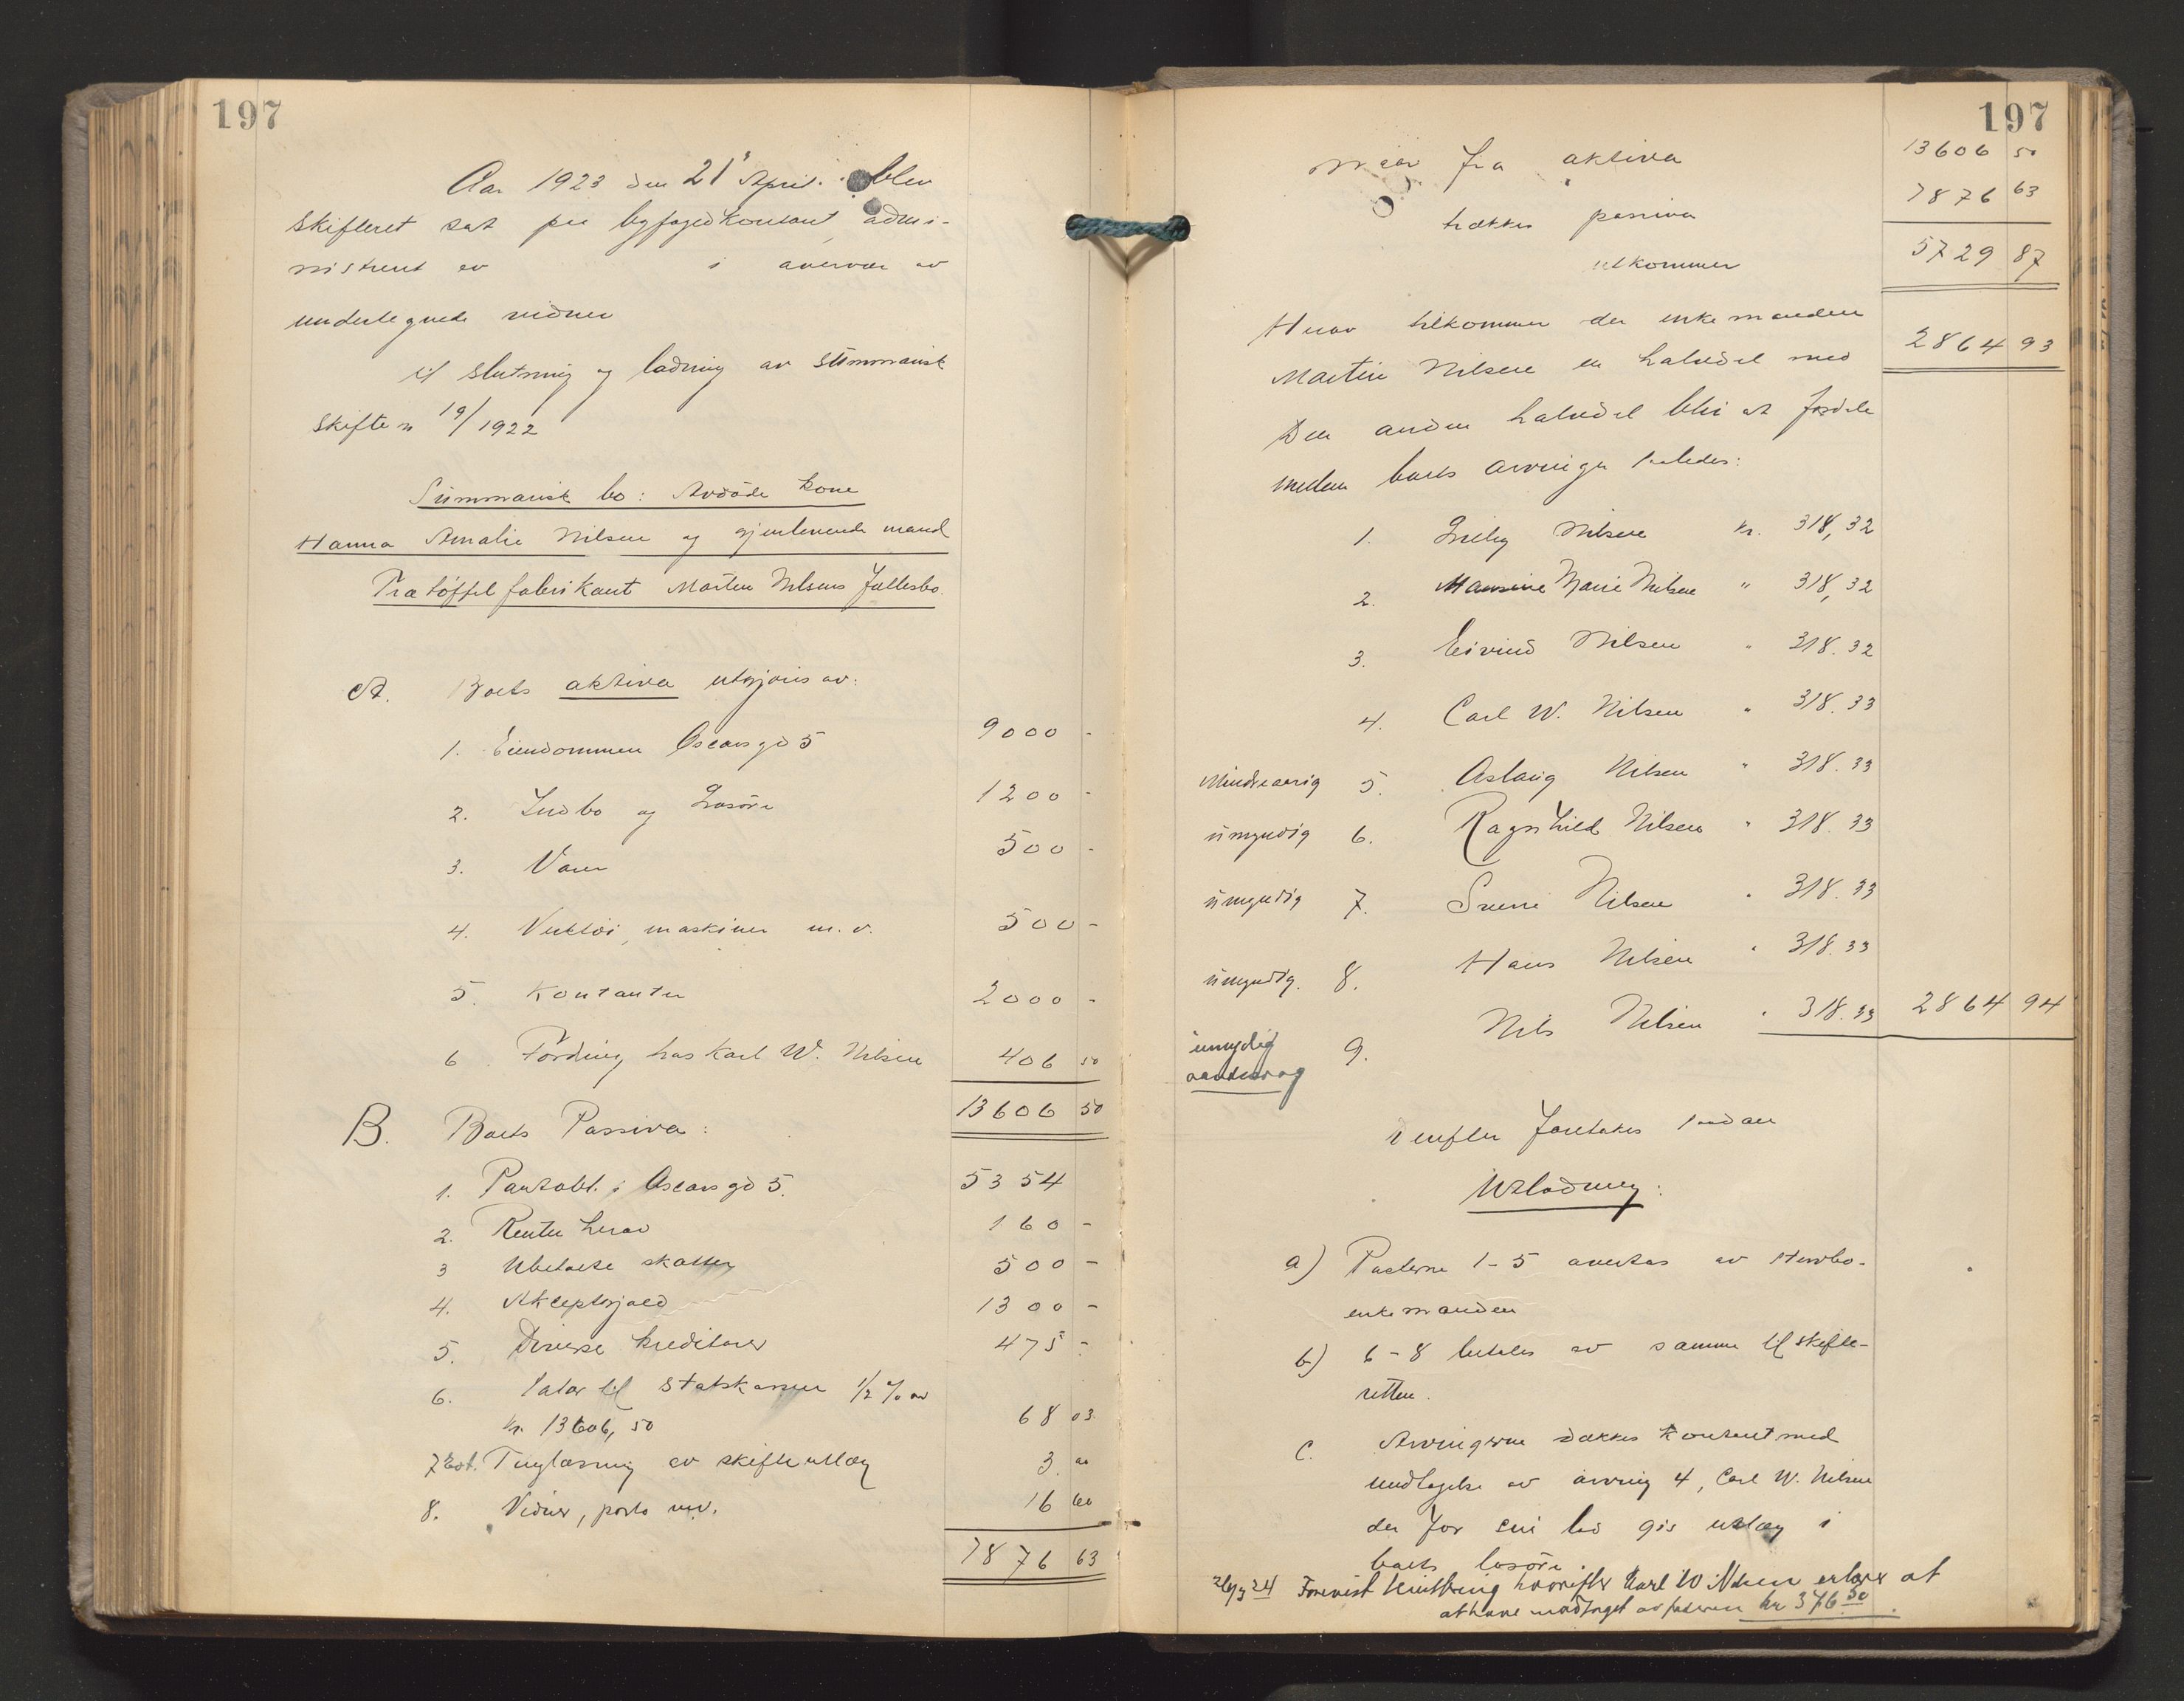 197
Aar 1923 den 21 April blev
skifteret sat paa byfogedkontoret, admi-
nistrert av i overvær av
undertegnede vidner
til slutning og lodning av summarisk
Skifte n 19/1922
Summarisk bo: Avdøde kone
Hanna Amalie Nilsen og gjenlevende mand
Trætøffelfabrikant Martin Nilsens Fællesbo.
A. Boets aktiva utgjøres av:
1. Eiendommen Oscarsgd 5 9000 -
2. Indbo og Løsøre 1200 -
3. Varer 500 -
4. Verktøi, maskiner m. v. 500 -
5. Kontanter 2000 -
6. Fordring hos Karl W. Nilsen 406 50
13606 50
B. Boets Passiva:
1. Pantobl. i Oscarsgd 5. 5354
2. Renter herav 160 -
3 Ubetalte skatter 500 -
4. Akceptgjæld 1300 -
5. Diverse kreditorer 475 -
6. Salær til Statskassen 1/2 % av
kr. 13606,50 68 03
7 Est. Tinglæsning av skifteutlæg 3. 00
8. Vidner, porto m.v. 16 60
7876 63
197
Naar fra aktiva 13606 50
trækkes passiva 7876 63
utkommer 5729 87
Herav tilkommer der enkemanden
Martin Nilsen en halvdel med 2864 93
Den anden halvdel blir at fordele
mellem boets arvinger saaledes:
1. Nilsen kr. 318,32
2. Marie Nilsen " 318,32
3. Eivind Nilsen " 318.32
4. Carl W. Nilsen " 318.33
Mindreaarig 5. Aslaug Nilsen " 318.33
umyndig 6. Ragnhild Nilsen " 318.33
umyndig 7. Sverre Nilsen " 318.33
umyndig. 8. Hans Nilsen " 318.33
umyndig
aandssvag 9. Nils Nilsen " 318.33 2864 94
Derefter foretakes saadan
Utlodning:
a) Posterne 1-5 overtas av Stervbo-
enkemanden
b) 6-8 betales av samme til skifte-
retten.
c. Arvingerne dækkes kontant med
undtagelse av arving 4, Carl W. Nilsen
der for sin lod gis utlæg i
boets løsøre.
24 Forevist kvittering hvorefter Karl W Nilsen erklærer at
at have modtaget av faderen kr 376 50